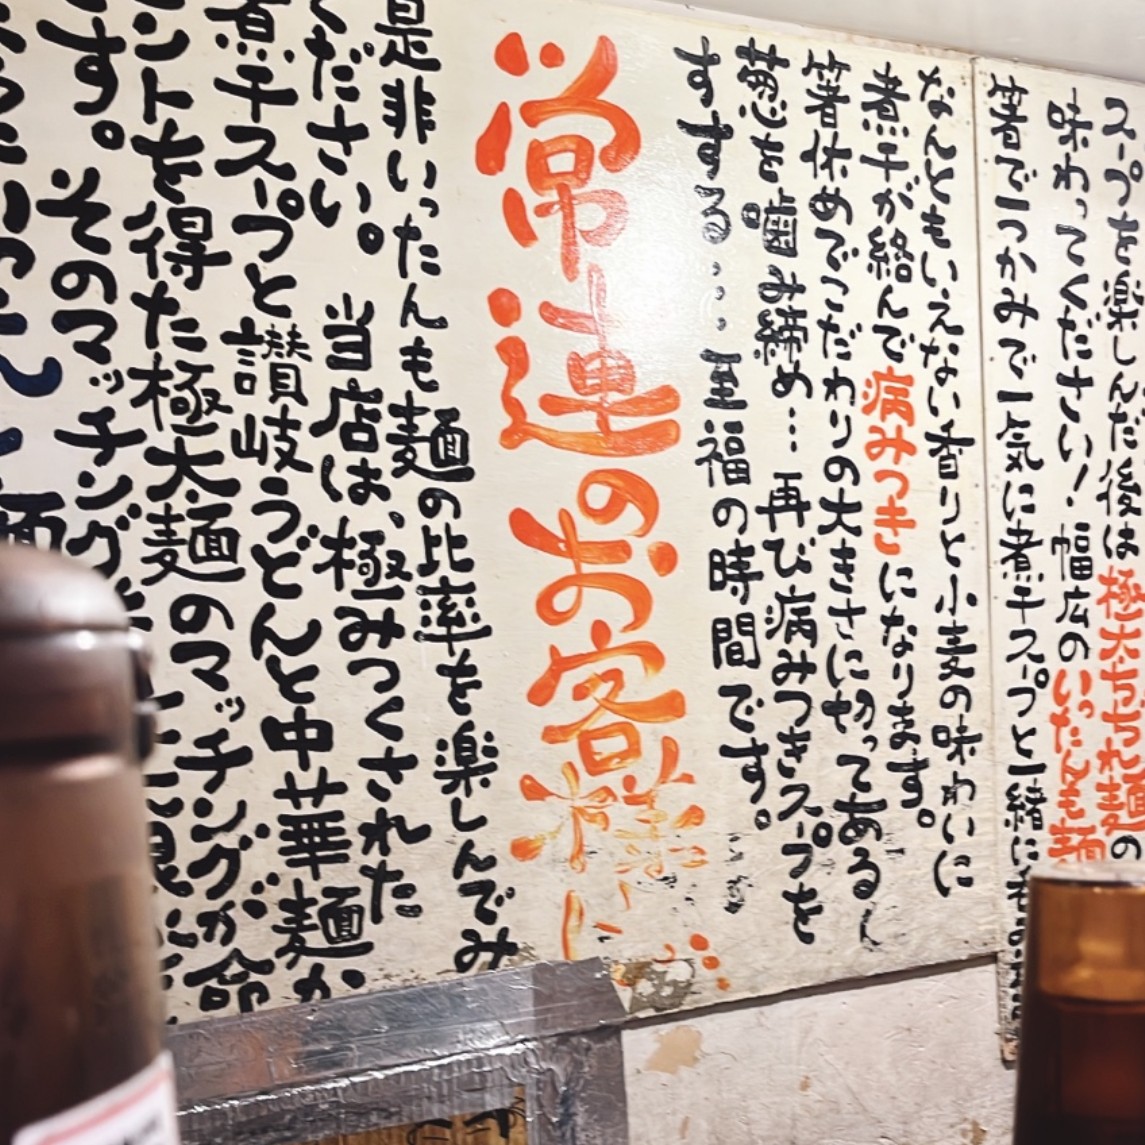 スープを楽しんだ後は極太ちぢれ麺の
味わってください!幅広のいったんも麺
箸でつかみで一気に煮干スープと一緒に
なんともいえない香りと小麦の味わいに
煮干が絡んで病みつきになります。
箸休めでこだわりの大きさに切ってある
葱を歯で噛み締め…再び病みつきスープを
すする…至福の時間です。
常連のお客様に
是非いったんも麺の比率を楽しんでみ
ください。当店は、極みつくされた
煮干スープと讃岐うどんと中華麺か
ントを得た極太麺のマッチングが命
す。そのマッチング